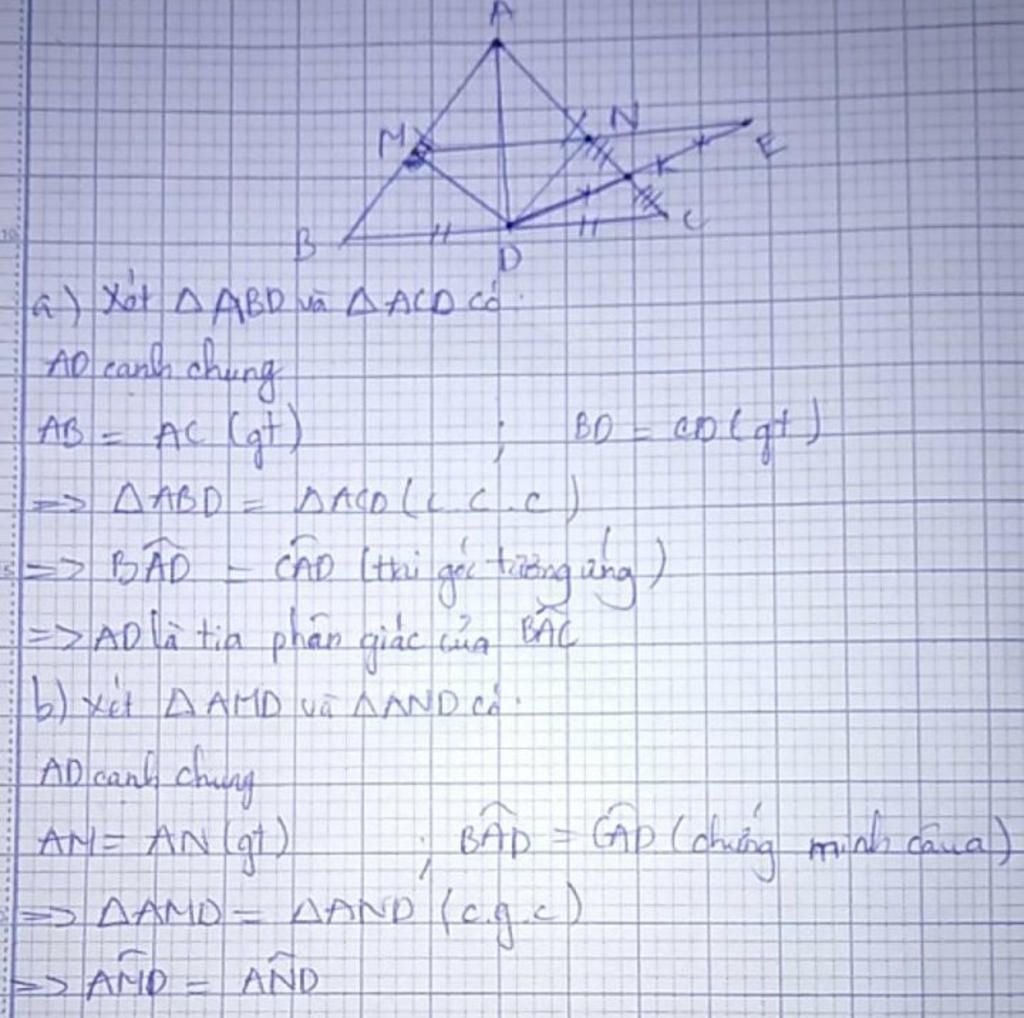 A
M
N
E
B
D
C
a) Xét △ABD và △ACD có
AD cạnh chung
AB = AC (gt) ; BD = CD (gt)
=> △ABD = △ACD (c.c.c)
=> BÂD = CÂD (hai góc tương ứng)
=> AD là tia phân giác của BÂC
b) Xét △AMD và △AND có
AD cạnh chung
AM = AN (gt) ; BÂD = CÂD (chứng minh câu a)
=> △AMD = △AND (c.g.c)
=> AM̂D = AN̂D